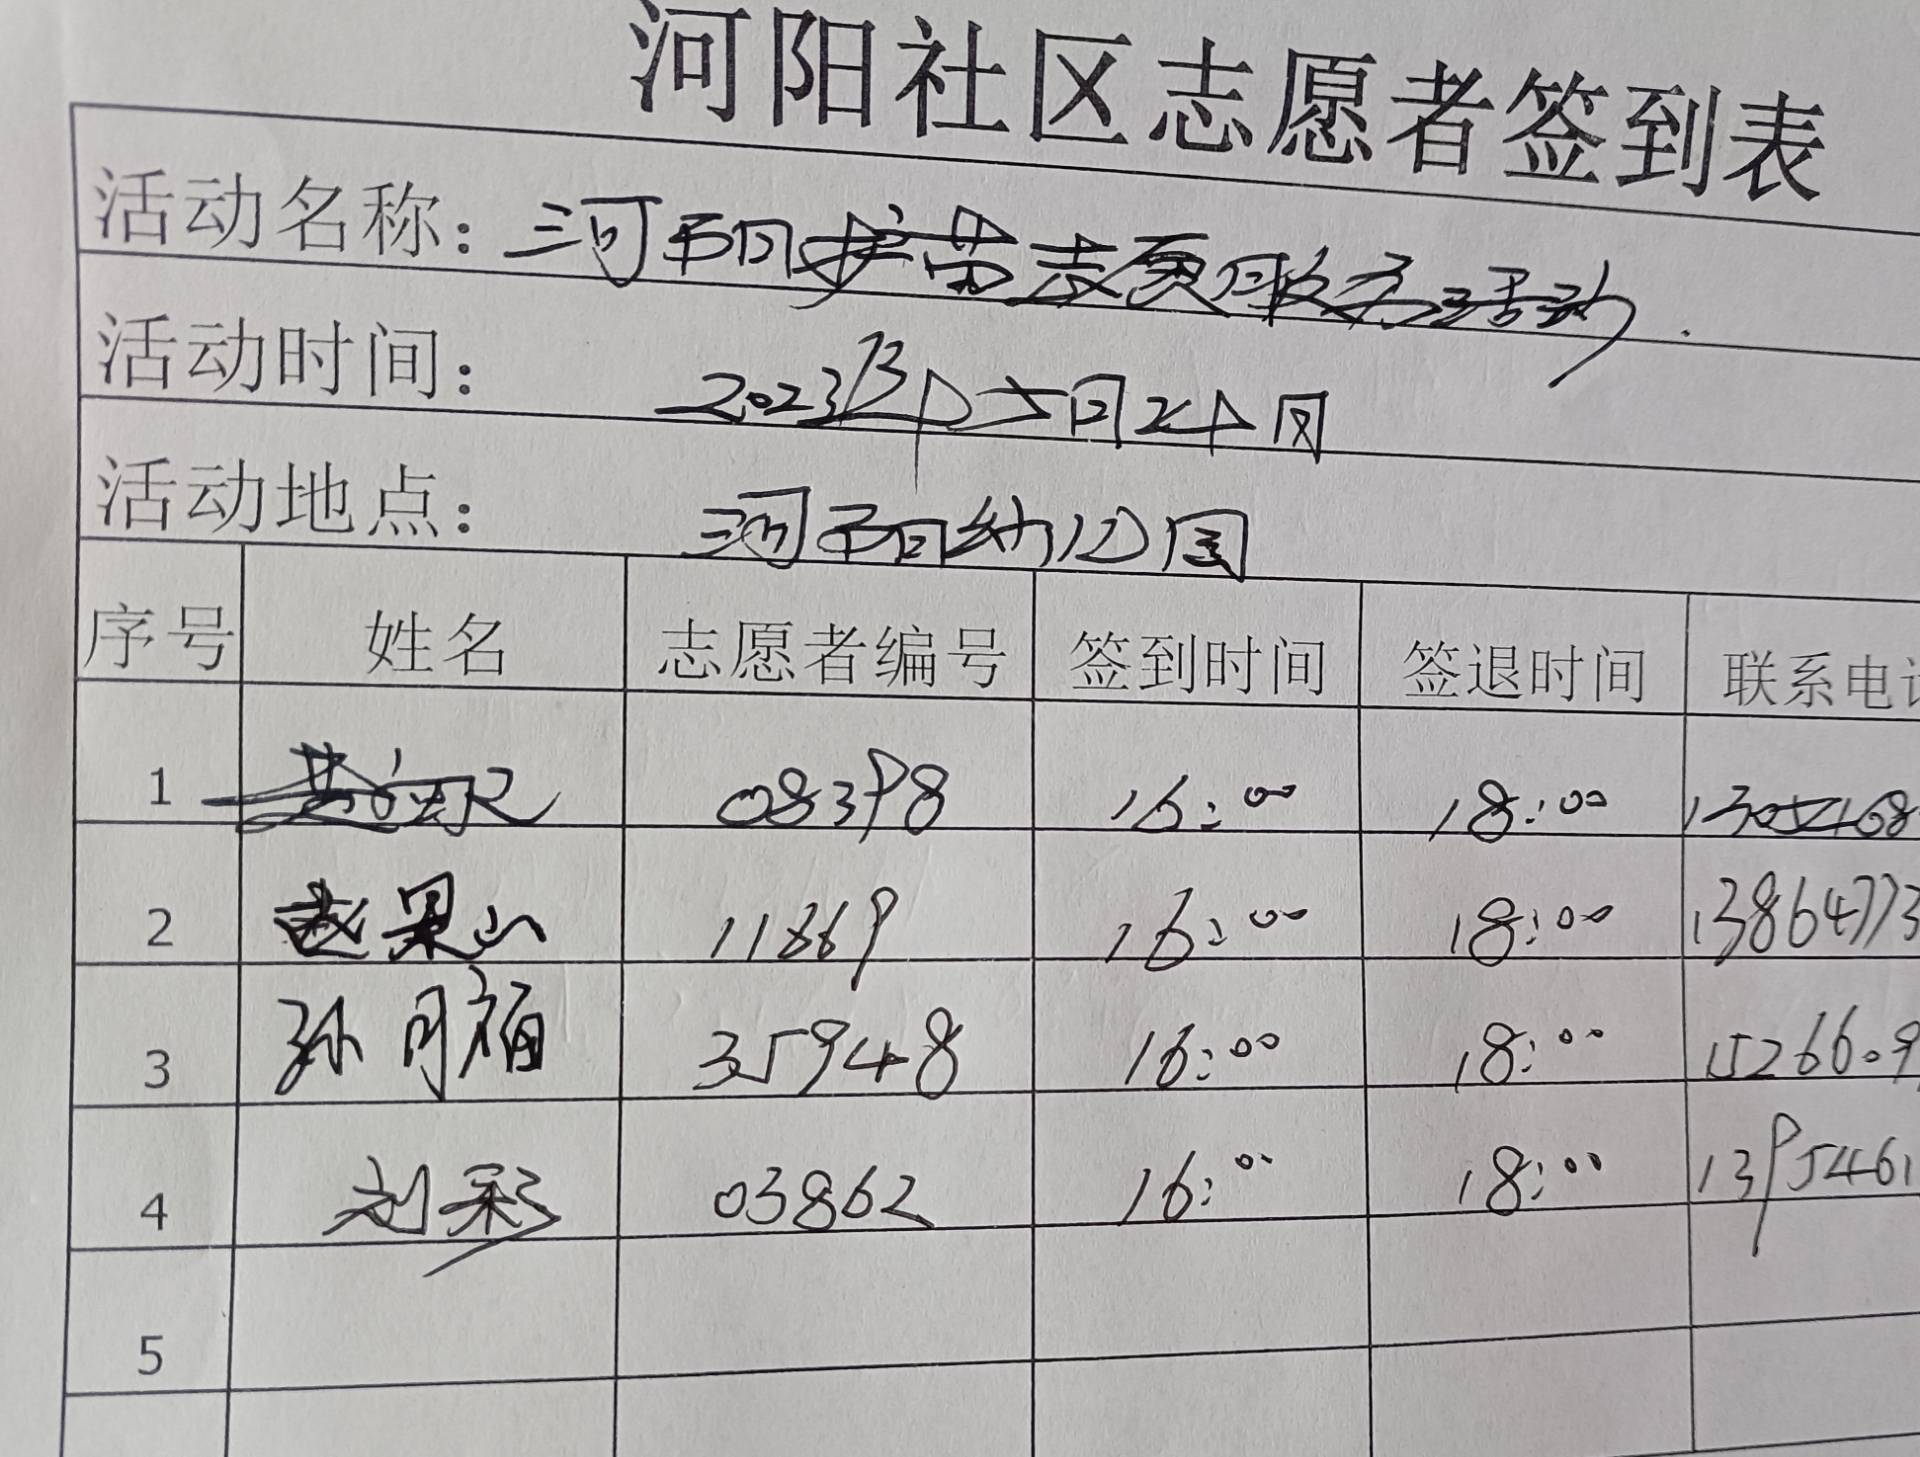 河阳社区志愿者签到表
活动名称：河阳护苗志愿服务活动.
活动时间：2023年5月24日
活动地点：河阳幼儿园
序号 姓名 志愿者编号 签到时间 签退时间 联系电
1 08398 16:00 18:00
2 赵果山 11869 16:00 18:00 13864773
3 孙月福 35948 16:00 18:00 1526609
4 刘彩 03862 16:00 18:00 1395461
5